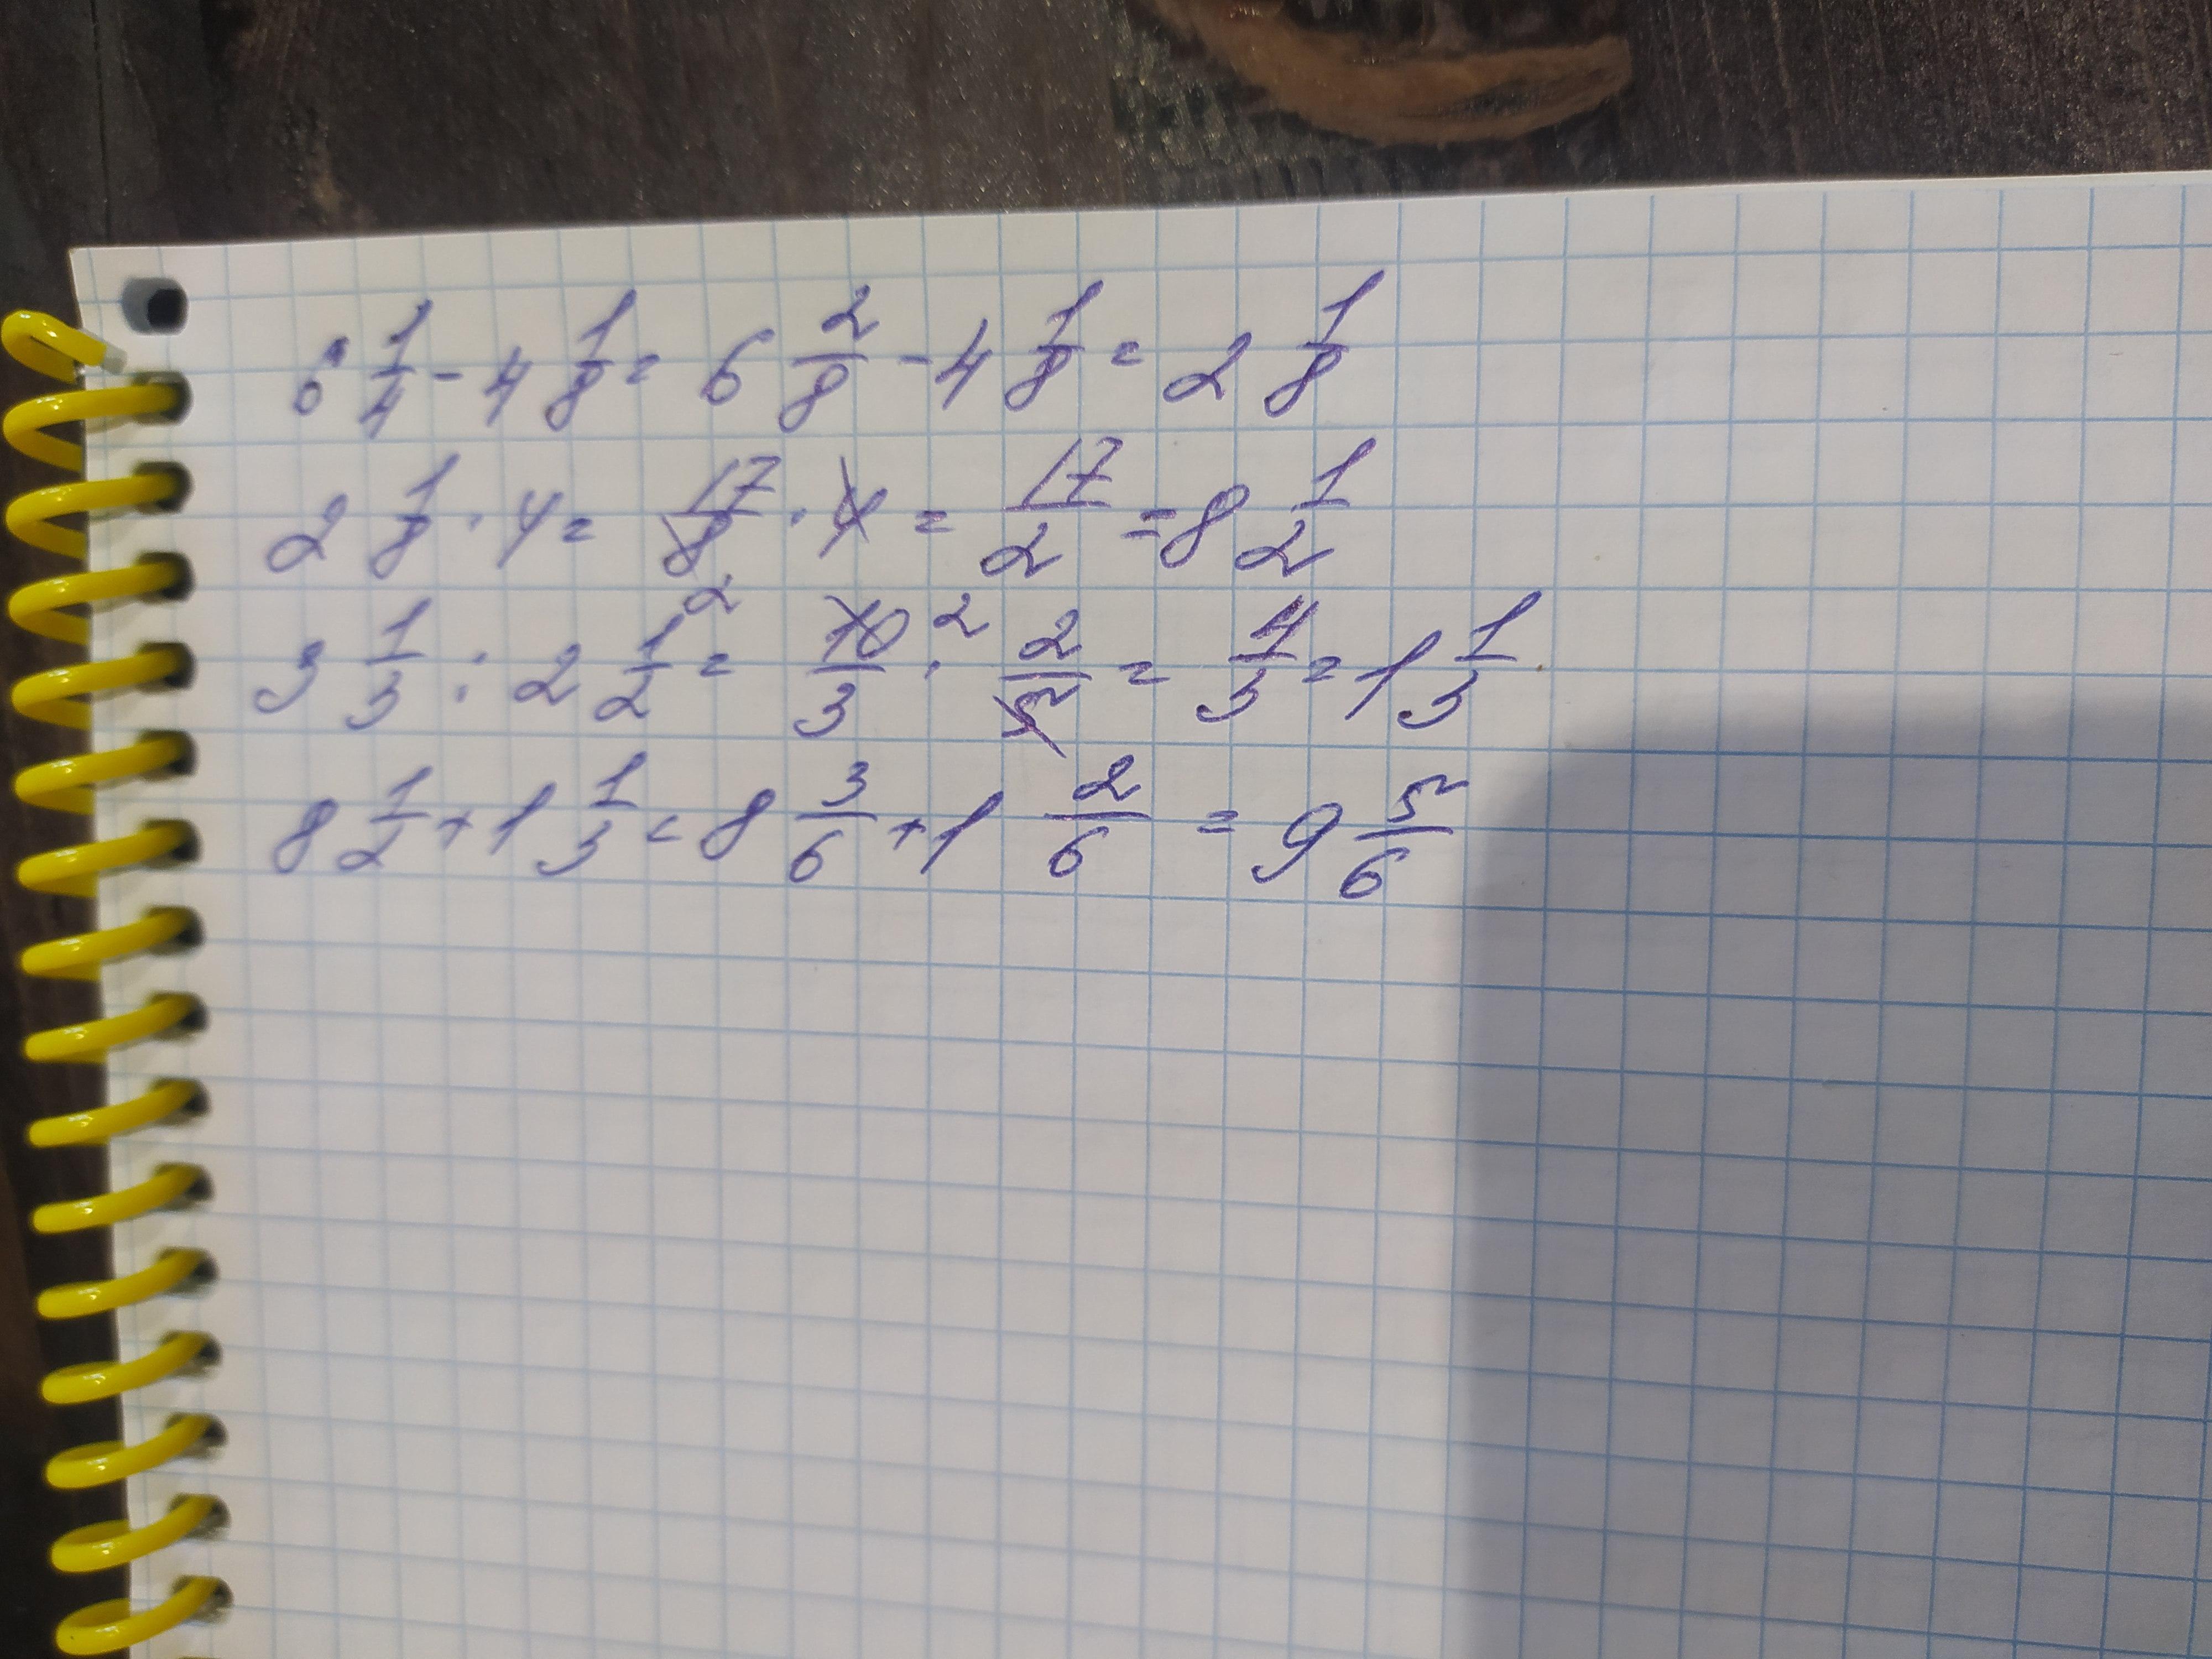 6 1/4 - 4 1/8 = 6 2/8 - 4 1/8 = 2 1/8
2 1/8 · 4 = 17/8 2 · 4 = 17/2 = 8 1/2
3 1/3 : 2 1/2 = 10/3 2 · 2/5 = 4/3 = 1 1/3
8 1/2 + 1 1/3 = 8 3/6 + 1 2/6 = 9 5/6